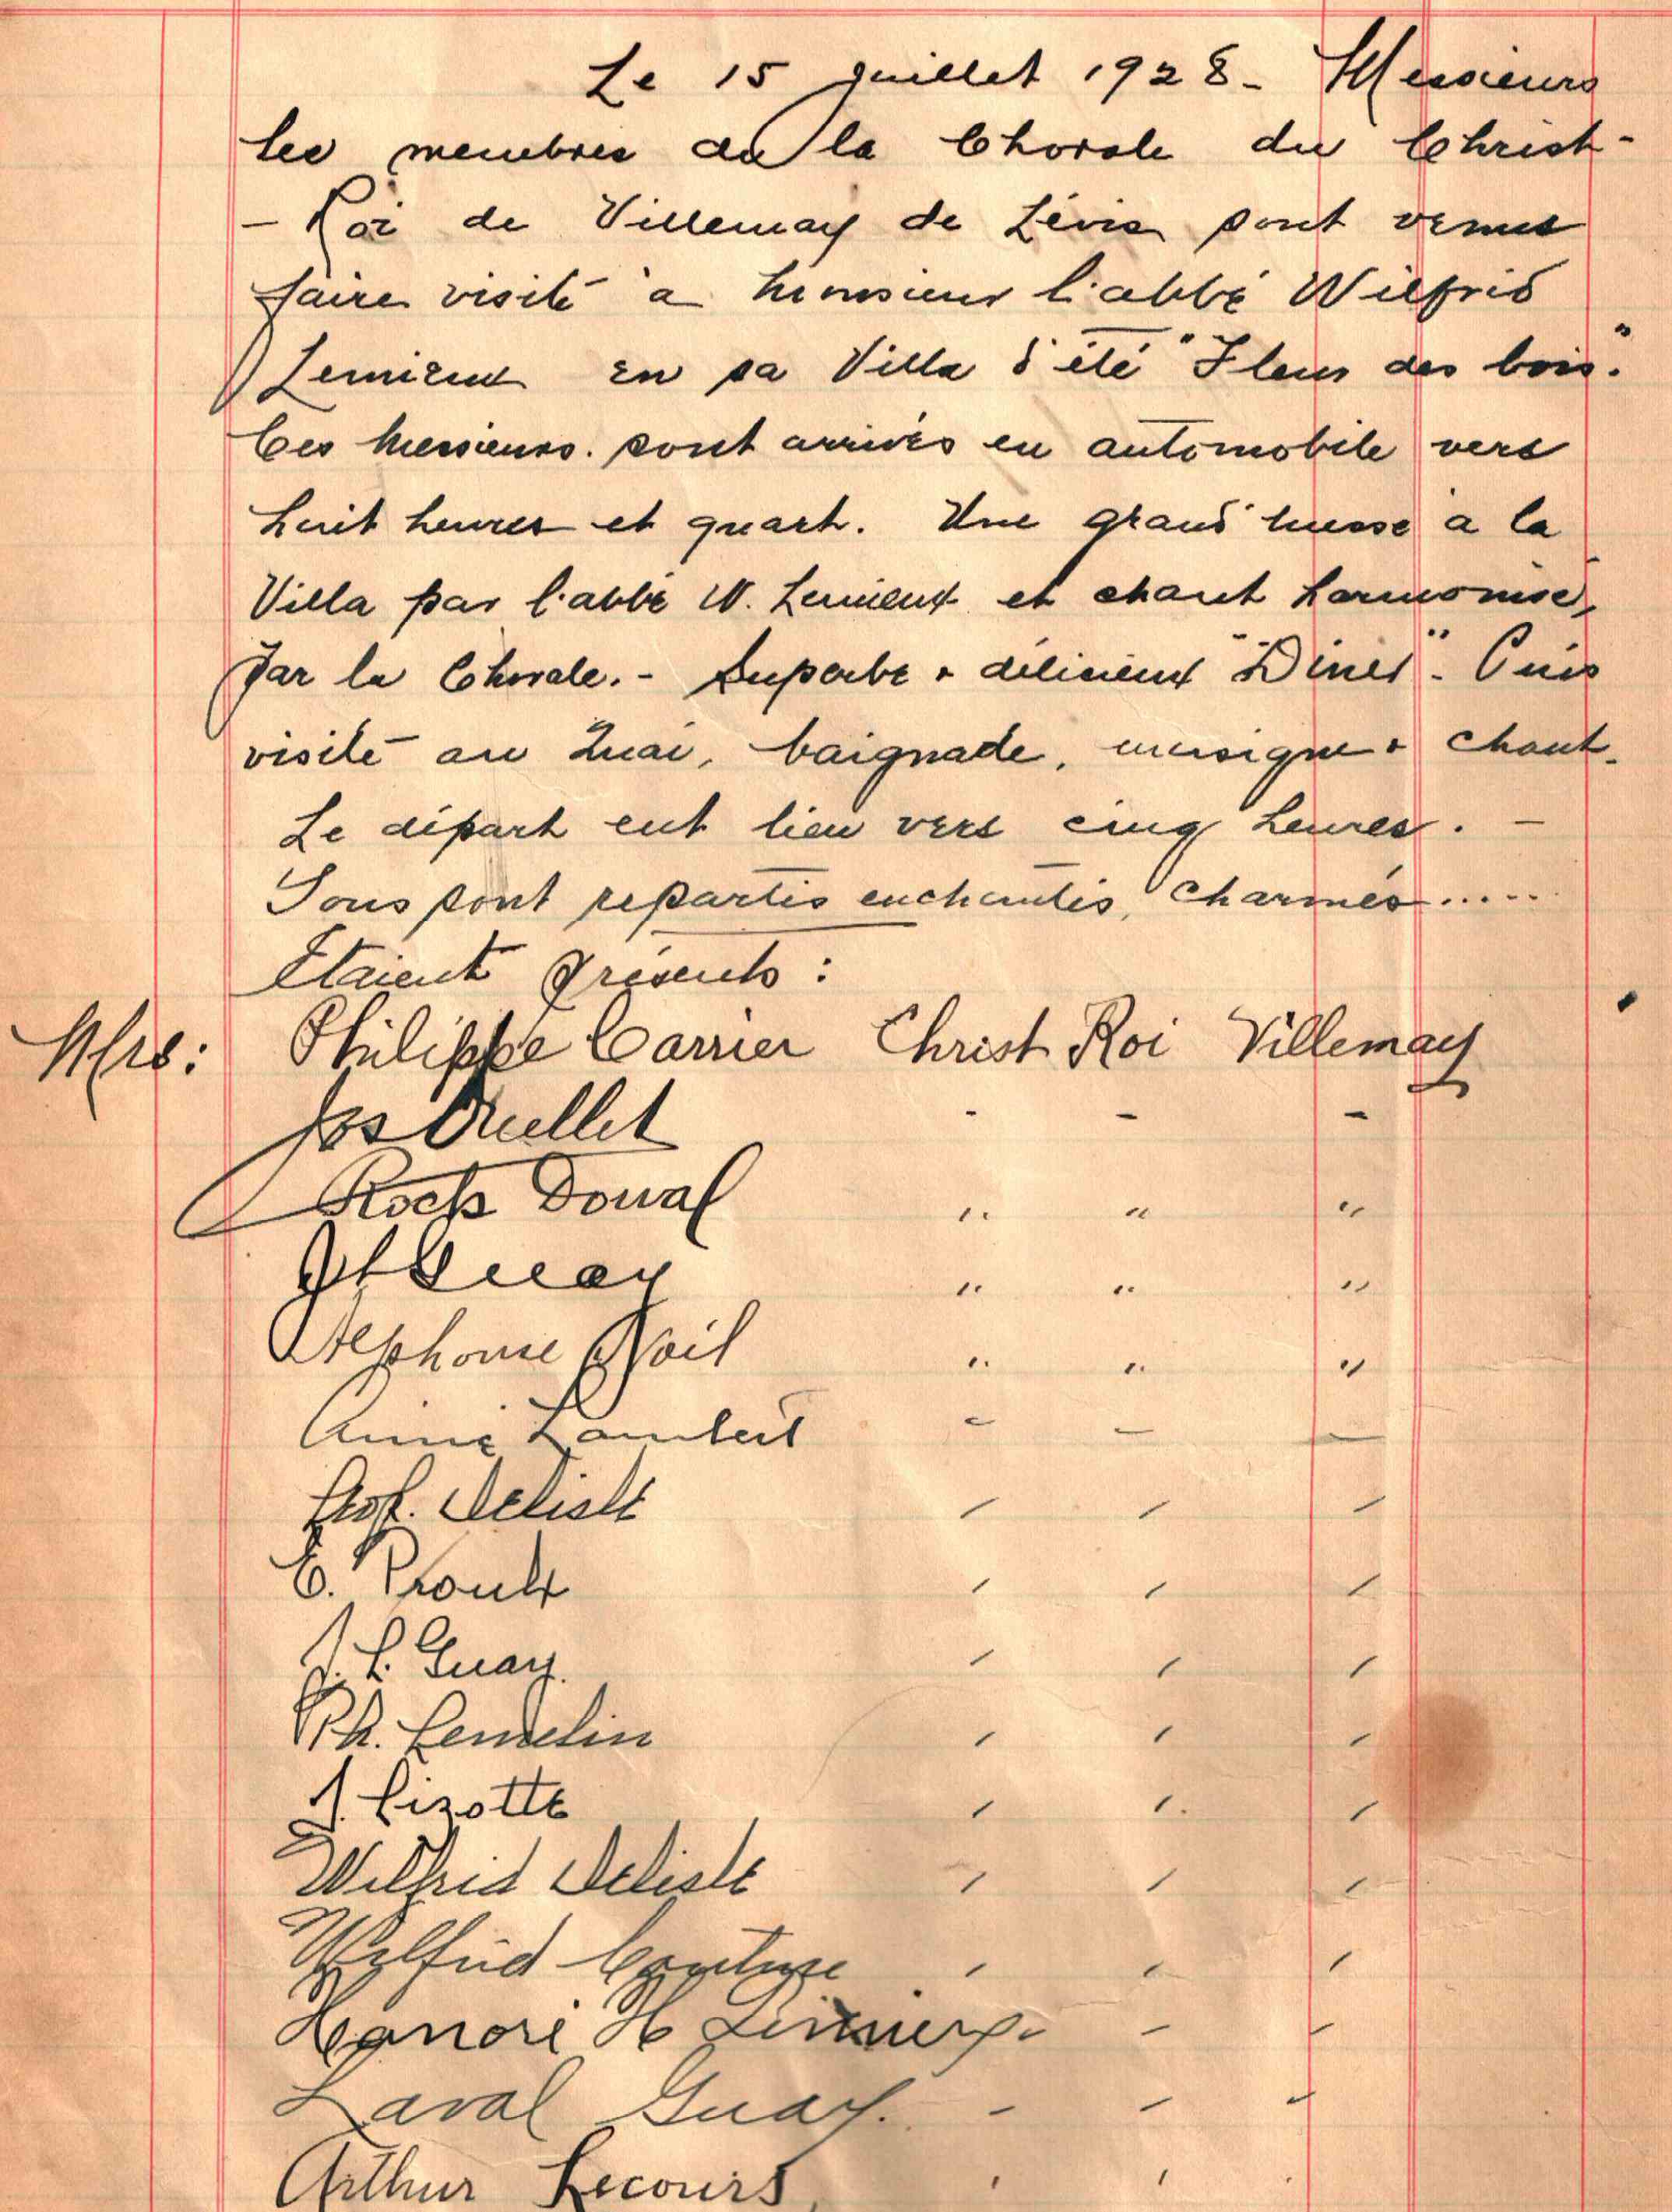 Le 15 juillet 1928 - Messieurs
les membres de la Chorale du Christ-
- Roi de Villemay de Lévis sont venus
faire visite à Monsieur l'abbé Wilfrid
Lemieux en sa Villa d'été "Fleur des bois".
Ces Messieurs. sont arrivés en automobile vers
huit heures et quart. Une grand'messe a la
Villa par l'abbé W. Lemieux et chant harmonisé,
par la Chorale. - Superbe & délicieux "Diner". Puis
visite au Quai, baignade, musique & chant.
Le départ eut lieu vers cinq heures. -
Tous sont repartis enchantés, charmés.....
Etaient présents :
Mrs: Philippe Carrier Christ Roi Villemay
Jos Ouellet - - -
Roch Doual " " "
Guay " " "
Alphonse Noël " " "
Aimé Lambert - - -
Prof. Delisle " " "
E. Proulx " " "
J. L. Guay. " " "
Ph. Lemelin " " "
J. Lizotte " " "
Wilfrid Delisle " " "
Wilfrid Couture " " "
Honoré H Lemieux. - -
Laval Guay. - - -
Arthur Lecours " " "